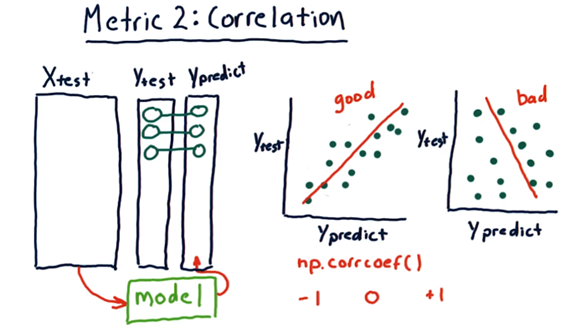 Metric 2: Correlation
Xtest
Ytest
Ypredict
model
good
Ytest
Ypredict
bad
Ytest
Ypredict
np.corrcoef()
-1 0 +1